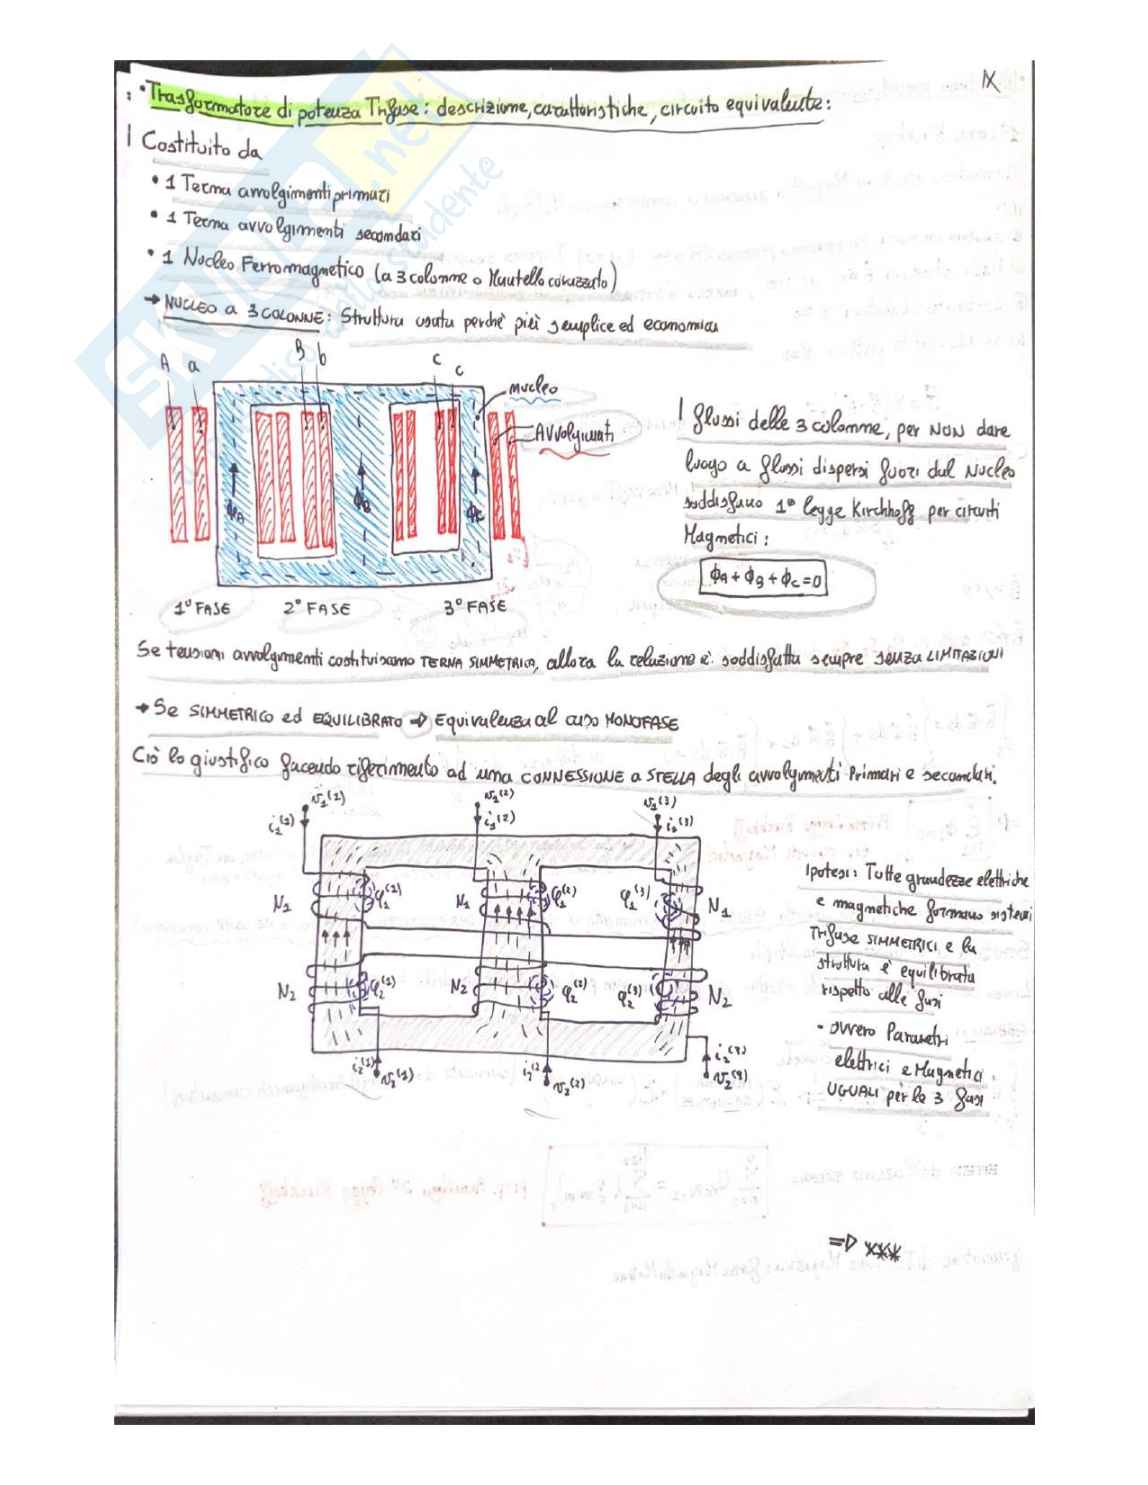 IX
• Trasformatore di potenza Trifase: descrizione, caratteristiche, circuito equivalente:
Costituito da
• 1 Terna avvolgimenti primari
• 1 Terna avvolgimenti secondari
• 1 Nucleo Ferromagnetico (a 3 colonne o Mantello corazzato)
→ NUCLEO a 3 COLONNE: Struttura usata perchè più semplice ed economica
A a B b C c
nucleo
Avvolgimenti
ΦA ΦB ΦC
1° FASE 2° FASE 3° FASE
I flussi delle 3 colonne, per NON dare
luogo a flussi dispersi fuori dal Nucleo
soddisfano 1° legge Kirchhoff per circuiti
Magnetici:
ΦA + ΦB + ΦC = 0
Se tensioni avvolgimenti costituiscono TERNA SIMMETRICA, allora la relazione è soddisfatta sempre senza LIMITAZIONI
→ Se SIMMETRICO ed EQUILIBRATO ⇒ Equivalenza al caso MONOFASE
Ciò lo giustifico facendo riferimento ad una CONNESSIONE a STELLA degli avvolgimenti Primari e secondari.
v₁⁽¹⁾ v₁⁽²⁾ v₁⁽³⁾
i₁⁽¹⁾ i₁⁽²⁾ i₁⁽³⁾
N₁ φ₁⁽¹⁾ N₁ φ₁⁽²⁾ φ₁⁽³⁾ N₁
N₂ φ₂⁽¹⁾ N₂ φ₂⁽²⁾ φ₂⁽³⁾ N₂
i₂⁽¹⁾ i₂⁽² i₂⁽³⁾
v₂⁽¹⁾ v₂⁽²⁾ v₂⁽³⁾
Ipotesi: Tutte grandezze elettriche
e magnetiche formano sistemi
Trifase SIMMETRICI e la
struttura è equilibrata
rispetto alle fasi
- ovvero Parametri
elettrici e Magnetici
UGUALI per le 3 fasi
⇒ ***
SKUOLA.net